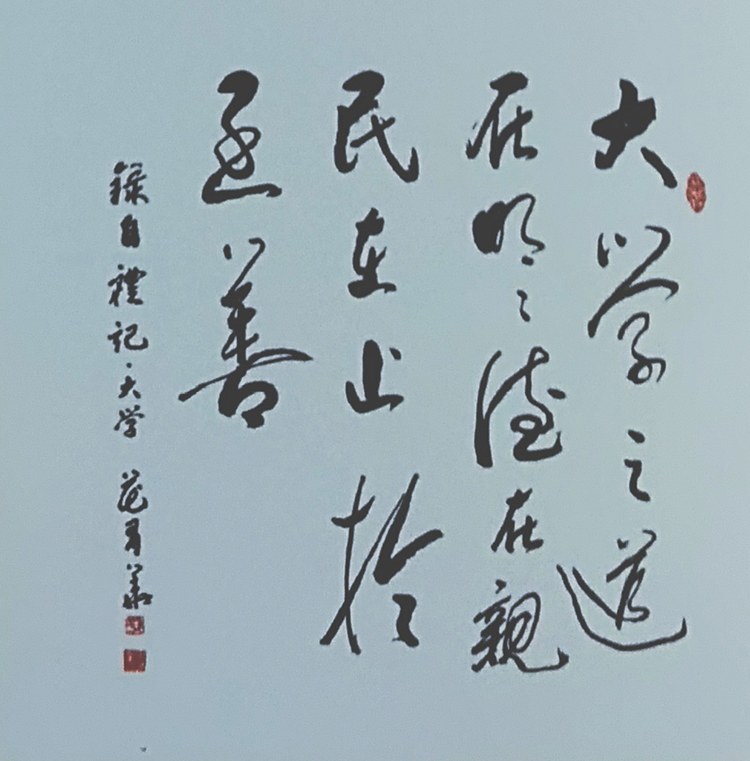 大学之道
在明々德在親
民在止於
至善
錄自禮記·大学